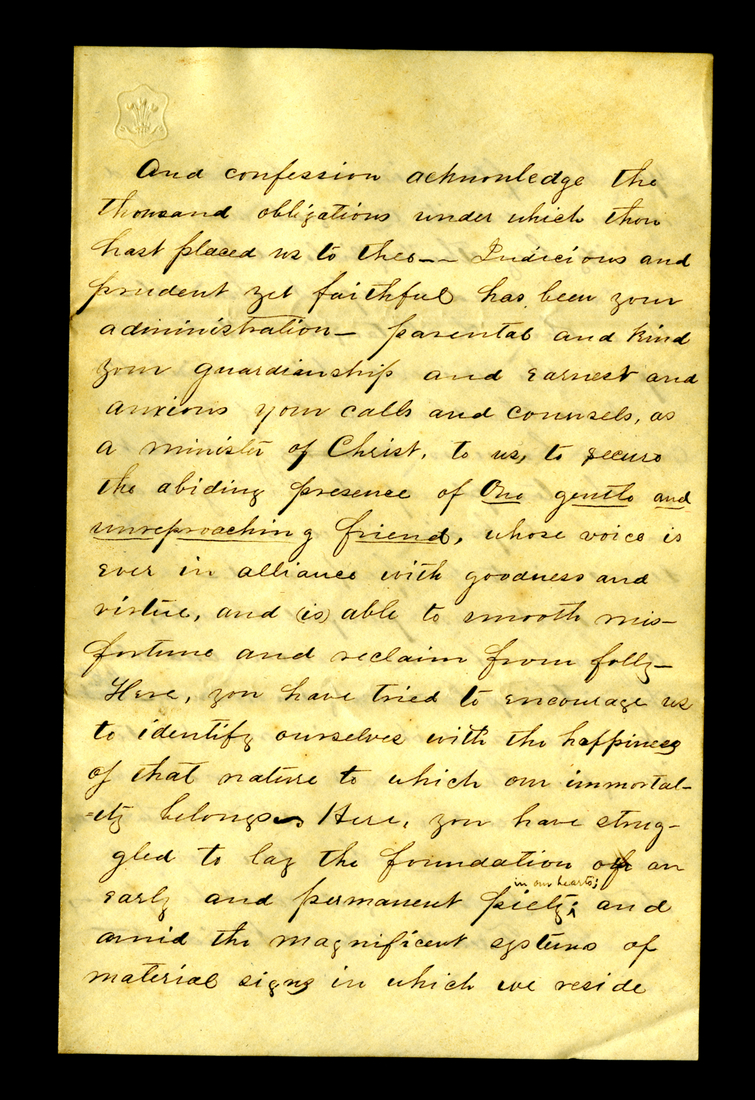 And confession acknowledge the
thousand obligations under which thou
hast placed us to thee-- Judicious and
prudent yet faithful has been your
administration- parental and kind
your guardianship and earnest and
anxious your calls and counsels, as
a minister of Christ, to us, to secure
the abiding presence of One gentle and
unreproaching friend, whose voice is
ever in alliance with goodness and
virtue, and (is) able to smooth mis-
fortune and reclaim from folly-
Here, you have tried to encourage us
to identify ourselves with the happiness
of that nature to which our immortal-
-ity belongs Here, you have strug-
gled to lay the foundation of an
early and permanent piety; in our hearts; and
amid the magnificent systems of
material signs in which we reside